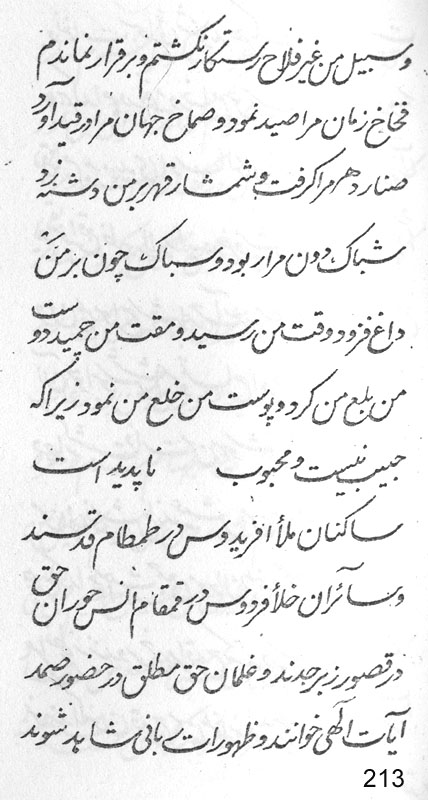 و سبیل من غیر فلاح رستگار نکشتم و بر قرار نماندم
فخاخ زمان مرا صید نمود و صماخ جهان مرا در قید آورد
صنار دهر مرا کرفت و شمشار قهر بر من دشنه زد
شباک دون مرا ربود و سباک چون بر من
داغ فزود وقت من رسید و مقت من چمید دوست
من بلع من کرد و پوست من خلع من نمود زیرا که
حبیب نیست و محبوب ناپدید است
ساکنان ملأ افریدوس در طمطام قدسند
و سائران خلأ فردوس در قمقام انس حوران حق
در قصور زبرجدند و غلمان حق مطلق در حضور صمد
آیات الهی خوانند و ظهورات ربانی مشاهد شوند
213